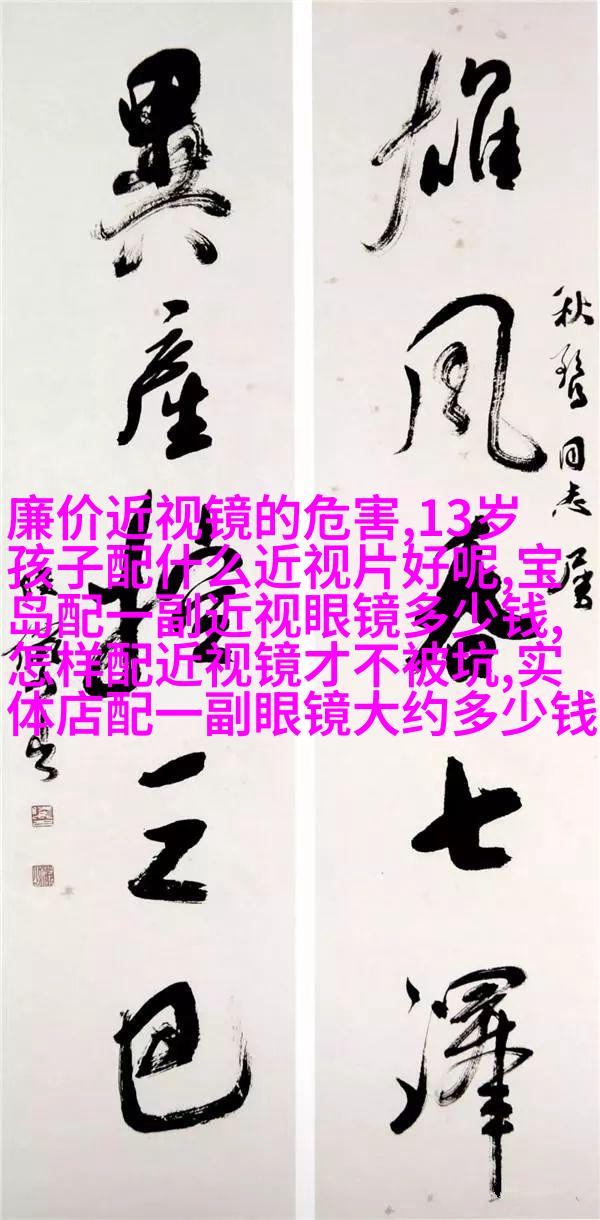 雄风七澤
秋鹜同志属
異產三巴
廉价近视镜的危害,13岁
孩子配什么近视片好呢,宝
岛配一副近视眼镜多少钱,
怎样配近视镜才不被坑,实
体店配一副眼镜大约多少钱